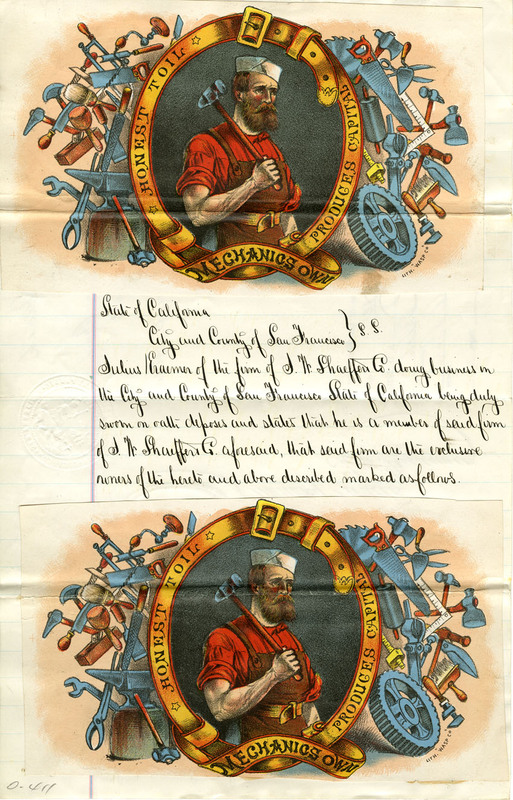 HONEST TOIL
PRODUCES CAPITAL
MECHANICS OWN
LITH. WASP CO
State of California
City and County of San Francisco } S.S.
Julius Kraemer of the firm of J. W. Shaeffer & Co. doing business in
the City and County of San Francisco State of California being duly
sworn on oath deposes and states that he is a member of said firm
of J. W. Shaeffer & Co. aforesaid, that said firm are the exclusive
owners of the hereto and above described marked as follows.
HONEST TOIL
PRODUCES CAPITAL
MECHANICS OWN
LITH. WASP CO
0-411